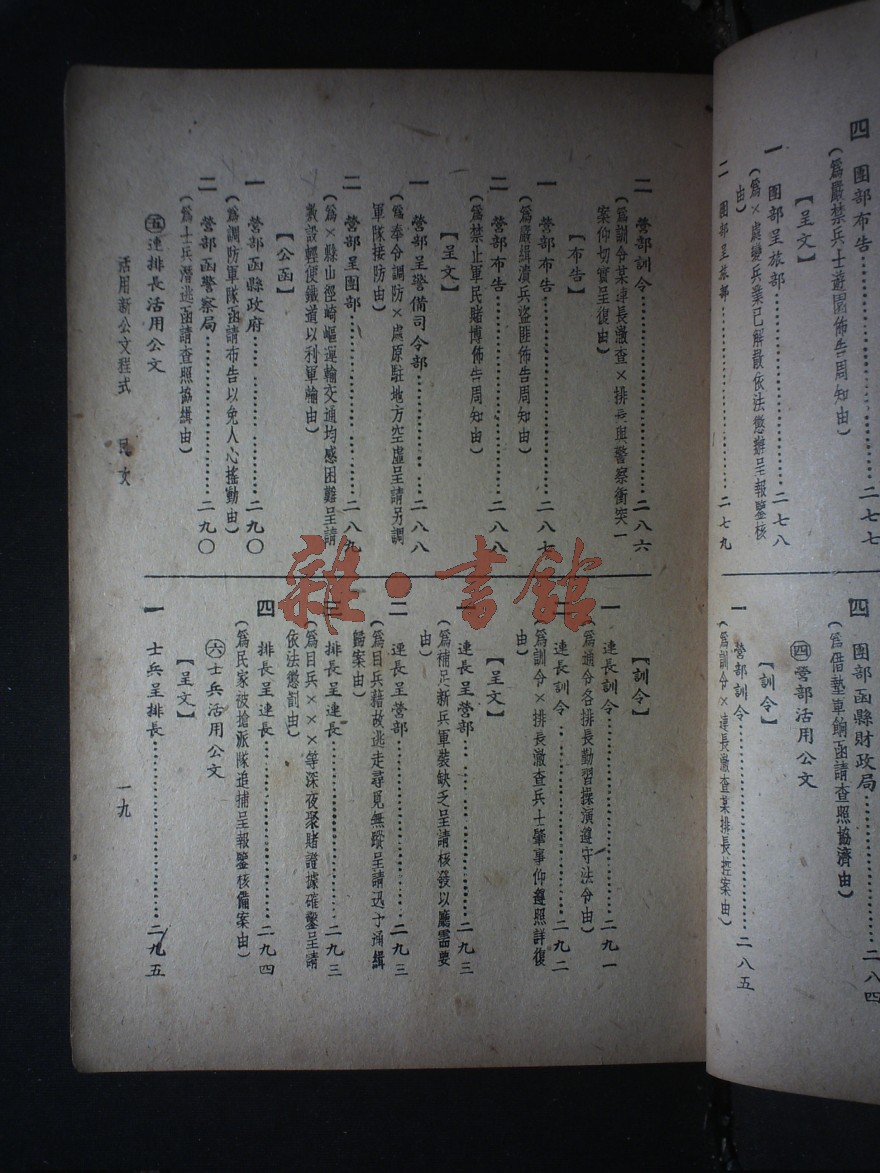 四 團部布告……二七七
(爲嚴禁兵士遊園佈告周知由)
【呈文】
一 團部呈旅部……二七八
(爲×處變兵業已解散依法懲辦呈報鑒核
由)
二 團部呈旅部……二七九
四 團部函縣財政局……二八四
(爲借墊軍餉函請查照協濟由)
㊃營部活用公文
【訓令】
一 營部訓令……二八五
(爲訓令×連長澈查某排長控案由)
二 營部訓令……二八六
(爲訓令某連長澈查×排長與警察衝突一
案仰切實呈復由)
【布告】
一 營部布告……二八七
(爲嚴緝潰兵盜匪佈告周知由)
二 營部布告……二八八
(爲禁止軍民賭博佈告周知由)
【呈文】
一 營部呈警備司令部……二八八
(爲奉令調防×處原駐地方空虛呈請另調
軍隊接防由)
二 營部呈團部……二八九
(爲×縣山徑崎嶇運輸交通均感困難呈請
敷設輕便鐵道以利軍輸由)
【公函】
一 營部函縣政府……二九〇
(爲調防軍隊函請布告以免人心搖動由)
二 營部函警察局……二九〇
(爲士兵潛逃函請查照協緝由)
㊄連排長活用公文
【訓令】
一 連長訓令……二九一
(爲通令各排長勤習操演遵守法令由)
二 連長訓令……二九二
(爲訓令×排長澈查兵士肇事仰遵照詳復
由)
【呈文】
一 連長呈營部……二九三
(爲補足新兵軍裝缺乏呈請核發以應需要
由)
二 連長呈營部……二九三
(爲目兵藉故逃走尋覓無蹤呈請迅予通緝
歸案由)
三 排長呈連長……二九三
(爲目兵×××等深夜聚賭證據確鑿呈請
依法懲罰由)
四 排長呈連長……二九四
(爲民家被搶派隊追捕呈報鑒核備案由)
㊅士兵活用公文
【呈文】
一 士兵呈排長……二九五
活用新公文程式 民文 一九
雜·書館